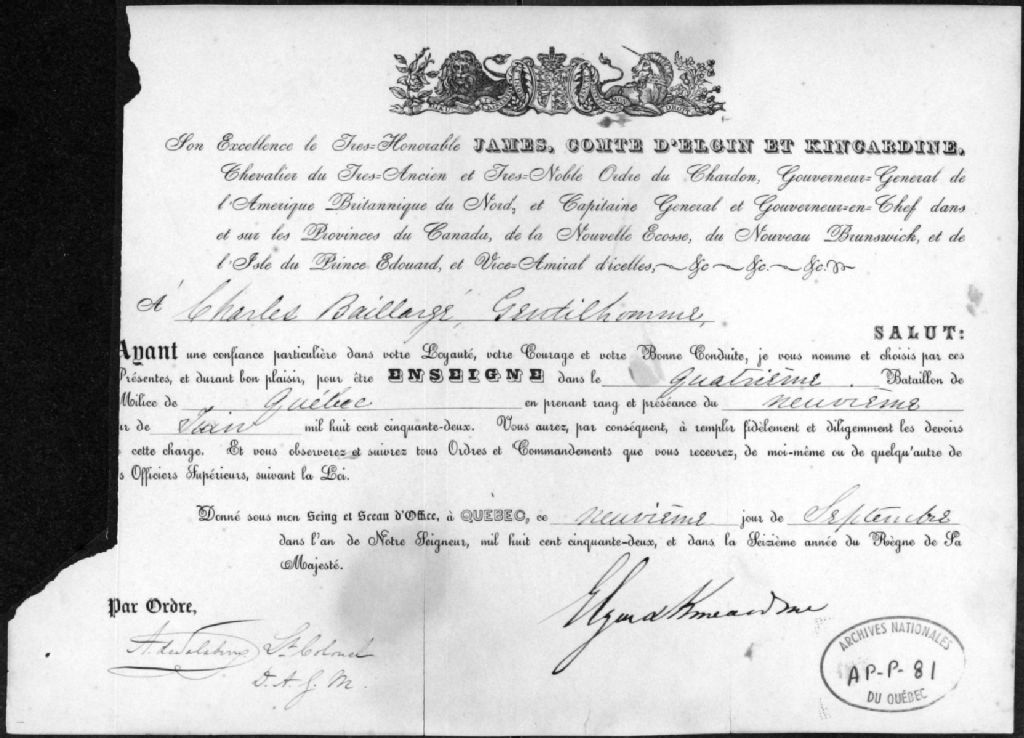 Son Excellence le Tres=Honorable JAMES, COMTE D'ELGIN ET KINCARDINE,
Chevalier du Tres=Ancien et Tres=Noble Ordre du Chardon, Gouverneur=General de
l'Amerique Britannique du Nord, et Capitaine General et Gouverneur=en=Chef dans
et sur les Provinces du Canada, de la Nouvelle Ecosse, du Nouveau Brunswick, et de
l'Isle du Prince Edouard, et Vice=Amiral d'icelles, &c &c. &c.
A' Charles Baillargé, Gentilhomme,
SALUT:
Ayant une confiance particulière dans votre Loyauté, votre Courage et votre Bonne Conduite, je vous nomme et choisis par ces
Présentes, et durant bon plaisir, pour être ENSEIGNE dans le quatrième Bataillon de
Milice de Québec en prenant rang et préséance du neuvième
ur de Juin mil huit cent cinquante-deux. Vous aurez, par conséquent, à remplir fidèlement et diligemment les devoirs
cette charge. Et vous observerez et suivrez tous Ordres et Commandements que vous recevrez, de moi-même ou de quelqu'autre de
s Officiers Supérieurs, suivant la Loi.
Donné sous mon Seing et Sceau d'Office, à QUÉBEC, ce neuvième jour de Septembre
dans l'an de Notre Seigneur, mil huit cent cinquante-deux, et dans la Seizième année du Règne de Sa
Majesté.
Elgin & Kincardine
Par Ordre,
Lt. Colonel
D. A. G. M.
ARCHIVES NATIONALES
AP-P-81
DU QUÉBEC